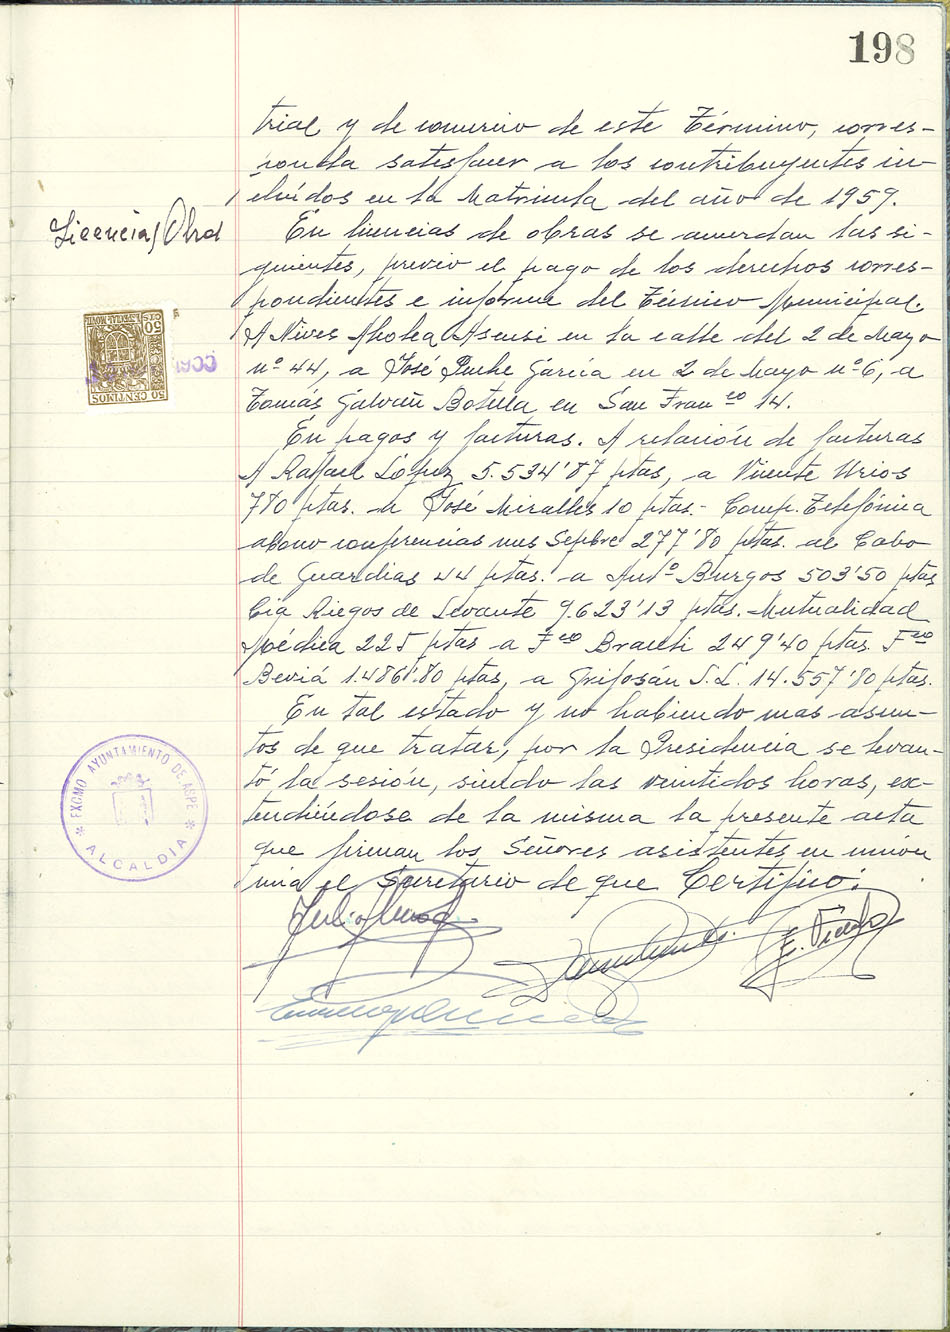 198
trial y de comercio de este Término, corres-
ponda satisfacer a los contribuyentes in-
cluídos en la Matrícula del año de 1959.
Licencias Obras
En licencias de obras se acuerdan las si-
guientes, previo el pago de los derechos corres-
pondientes e informe del Técnico Municipal.
A Nieves Asensi en la calle del 2 de Mayo
nº 44, a José Puche García en 2 de Mayo nº 6, a
Tomás Galván Botella en San Fran co 14.
50 CENTIMOS
ESPECIAL MOVIL
50 CTS
En pagos y facturas. A relación de facturas
A Rafael López 5.534'87 ptas, a Vicente Urios
780 ptas. a José Miralles 10 ptas.- Comp. Telefónica
abono conferencias mes Sepbre 277'80 ptas. al Cabo
de Guardias 44 ptas. a Antº Burgos 503'50 ptas
Cia Riegos de Levante 9.623'13 ptas. Mutualidad
Médica 225 ptas a F co 249'40 ptas. F co
Beviá 1.486'80 ptas, a Grifosán S.L. 14.557'80 ptas.
En tal estado y no habiendo mas asun-
tos de que tratar, por la Presidencia se levan-
tó la sesión, siendo las veintidos horas, ex-
tendiéndose de la misma la presente acta
que firman los Señores asistentes en unión
mia el Secretario de que Certifico.
EXCMO AYUNTAMIENTO DE ASPE
* ALCALDIA *